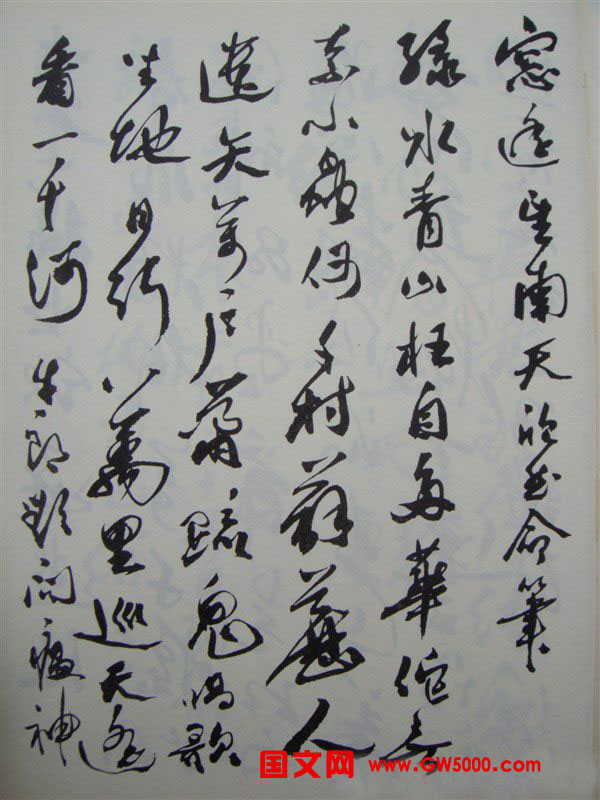 窗遥望南天欣然命筆
綠水青山枉自多華佗無
奈小蟲何千村薜藶人
遺矢萬戶蕭疏鬼唱歌
坐地日行八萬里巡天遥
看一千河牛郎欲問瘟神
国文网 www.GW5000.com